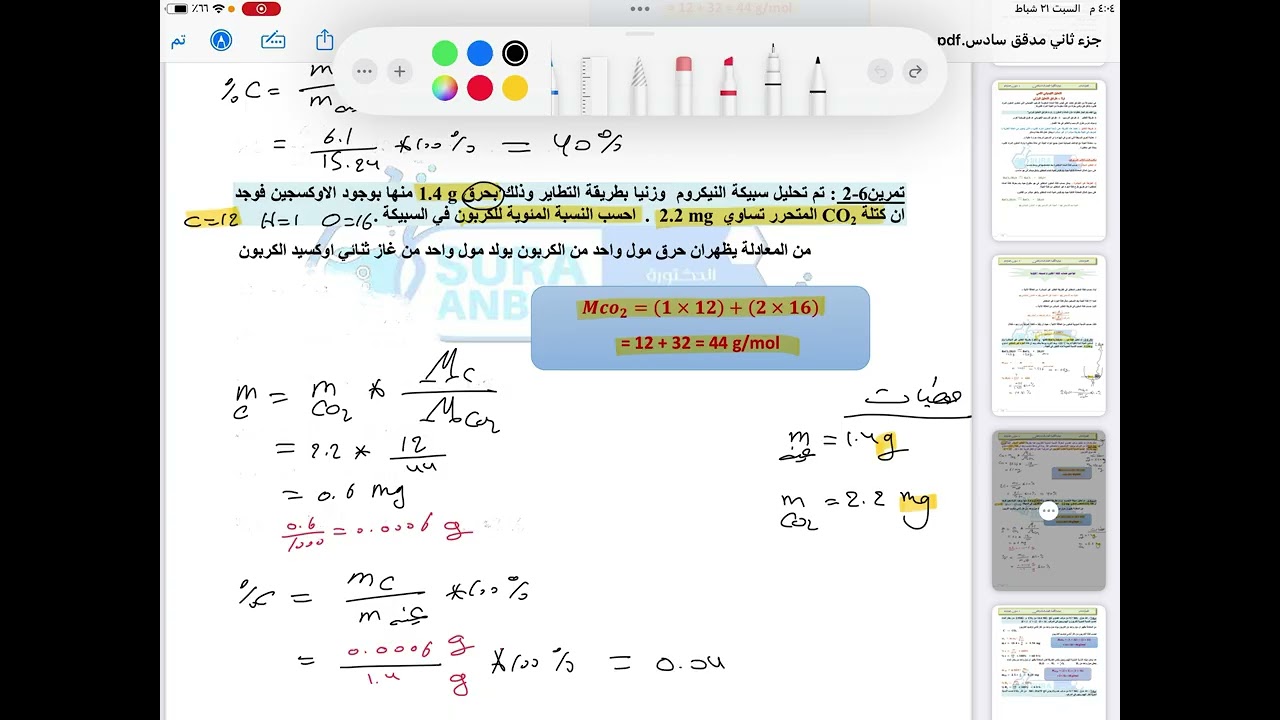 ٤:٠٤ م السبت ٢١ شباط
٦٦٪
= 12 + 32 = 44 g/mol
جزء ثاني مدقق سادس.pdf
تم
%C = m/m
= 6.1/15.24 *100% = 40%
تمرين6-2 : تم سبيكة النيكروم وزنيا بطريقة التطاير وذلك بحرق 1.4 g سجين فوجد
ان كتلة CO2 المتحرر تساوي 2.2 mg . احسب النسبة المئوية للكربون في السبيكة . O=16 H=1 C=12
من المعادلة يظهران حرق مول واحد من الكربون يولد مول واحد من غاز ثنائي اوكسيد الكربون
الدكتورة
Mco2 = (1 × 12) + (2 × 16)
= 12 + 32 = 44 g/mol
معطيات
m = 1.4g
m CO2 = 2.2 mg
m C = m CO2 * Mc/MCO2
= 2.2 * 12/44
= 0.6 mg
0.6/1000 = 0.0006 g
%C = mC/m *100%
= 0.0006 g/1. g *100% = 0.04